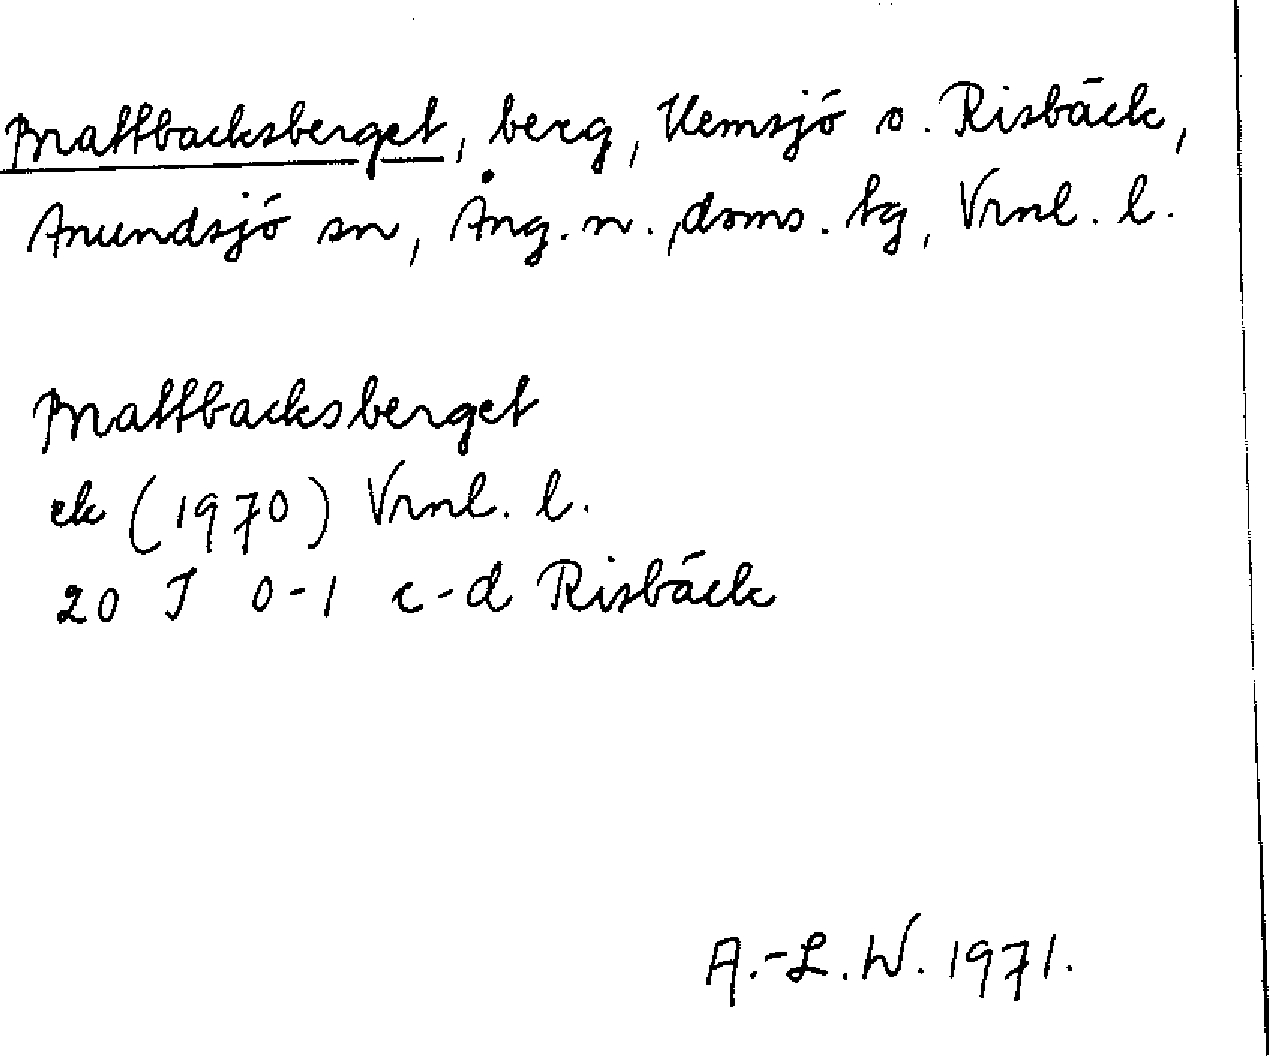 Brattbacksberget, berg, o. Risbäck,
Anundsjö sn, Ång. n. doms. tg, Vrnl. l.
Brattbacksberget
ek (1970) Vrnl. l.
20 J 0-1 c-d Risbäck
A.-L. W. 1971.